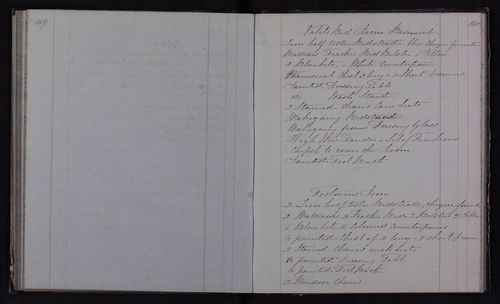 159
160
Valets Bed Room Basement
Iron half tester Bedsteads blue chequer furniture
Mattress Feather Bed Bolster & Pillow
3 Blankets, White Counterpane
Chest of 2 long & 2 short Drawers
Painted Dressing Table
do Wash Stand
2 Stained Chairs Cane Seats
Mahogany Bedstead
Mahogany frame Dressing Glass
High Wire Fender & Set of Fire Irons
Carpet to cover the Room
Painted Foot Bath
Footmens Room
2 Iron half tester Bedsteads, chequer furniture
2 Mattresses 2 Feather Beds 2 Bolsters 2 Pillows
6 Blankets 2 Coloured Counterpanes
A painted Chest of 2 long & 2 short Drawers
2 Stained Chairs rush Seats
A painted Dressing Table
A painted Foot Bath
2 Windsor Chairs